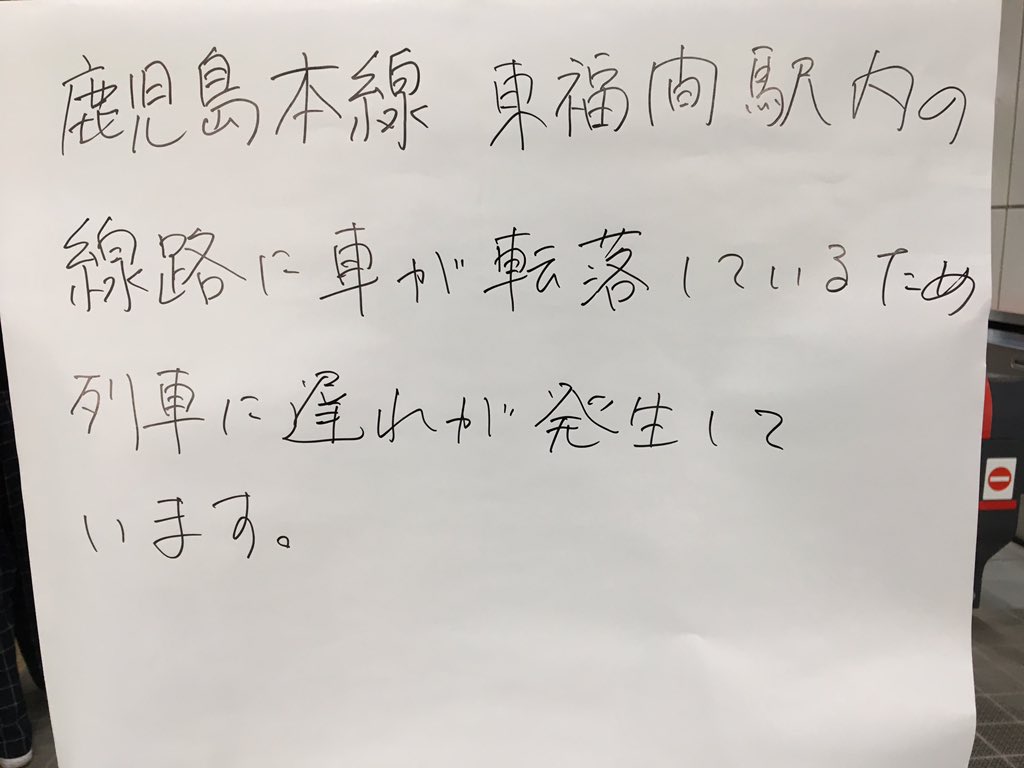 鹿児島本線 東福間駅内の
線路に車が転落しているため
列車に遅れが発生して
います。